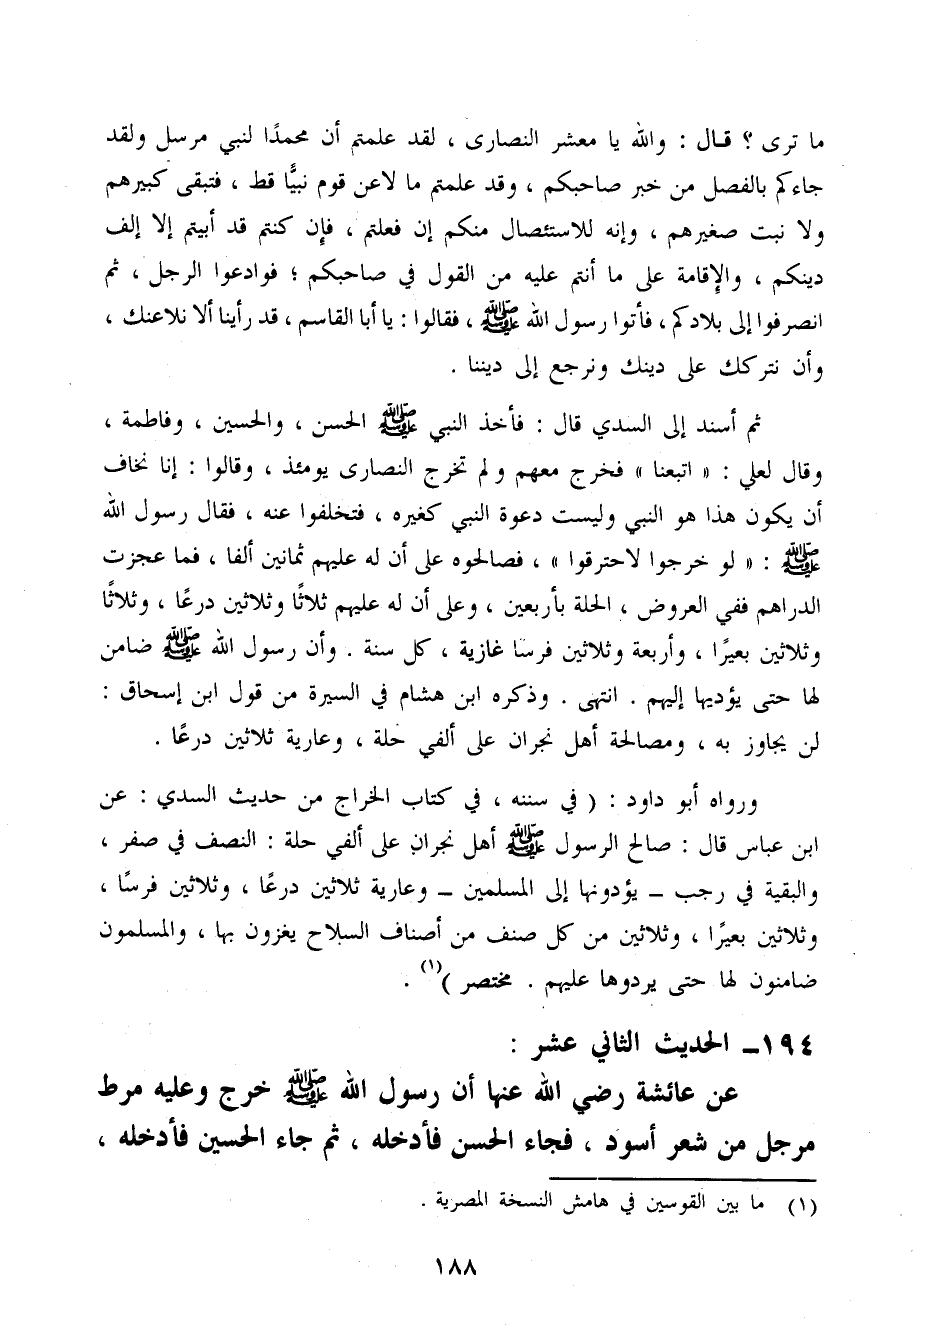 ما ترى ؟ قال : والله يا معشر النصارى ، لقد علمتم أن محمدًا لنبي مرسل ولقد
جاءكم بالفصل من خبر صاحبكم ، وقد علمتم ما لاعن قوم نبيًّا قط ، فتبقى كبيرهم
ولا نبت صغيرهم ، وإنه للاستئصال منكم إن فعلتم ، فإن كنتم قد أبيتم إلا إلف
دينكم ، والإقامة على ما أنتم عليه من القول في صاحبكم ؛ فوادعوا الرجل ، ثم
انصرفوا إلى بلادكم ، فأتوا رسول الله ﷺ ، فقالوا : يا أبا القاسم ، قد رأينا ألا نلاعنك ،
وأن نتركك على دينك ونرجع إلى ديننا .
ثم أسند إلى السدي قال : فأخذ النبي ﷺ الحسن ، والحسين ، وفاطمة ،
وقال لعلي : « اتبعنا » فخرج معهم ولم تخرج النصارى يومئذ ، وقالوا : إنا نخاف
أن يكون هذا هو النبي وليست دعوة النبي كغيره ، فتخلفوا عنه ، فقال رسول الله
ﷺ : « لو خرجوا لاحترقوا » ، فصالحوه على أن له عليهم ثمانين ألفا ، فما عجزت
الدراهم ففي العروض ، الحلة بأربعين ، وعلى أن له عليهم ثلاثًا وثلاثين درعًا ، وثلاثًا
وثلاثين بعيرًا ، وأربعة وثلاثين فرسًا غازية ، كل سنة . وأن رسول الله ﷺ ضامن
لها حتى يؤديها إليهم . انتهى . وذكره ابن هشام في السيرة من قول ابن إسحاق :
لن يجاوز به ، ومصالحة أهل نجران على ألفي حلة ، وعارية ثلاثين درعًا .
ورواه أبو داود : ( في سننه ، في كتاب الخراج من حديث السدي : عن
ابن عباس قال : صالح الرسول ﷺ أهل نجران على ألفي حلة : النصف في صفر ،
والبقية في رجب – يؤدونها إلى المسلمين – وعارية ثلاثين درعًا ، وثلاثين فرسًا ،
وثلاثين بعيرًا ، وثلاثين من كل صنف من أصناف السلاح يغزون بها ، والمسلمون
ضامنون لها حتى يردوها عليهم . مختصر )(١) .
١٩٤ – الحديث الثاني عشر :
عن عائشة رضي الله عنها أن رسول الله ﷺ خرج وعليه مرط
مرجل من شعر أسود ، فجاء الحسن فأدخله ، ثم جاء الحسين فأدخله ،
(١) ما بين القوسين في هامش النسخة المصرية .
١٨٨